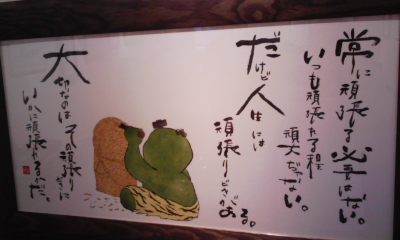 常に頑張る必要はない。
いつも頑張れる程
頑丈じゃない。
だけど人生には
頑張りどきがある。
大切なのはその頑張りどきに
いかに頑張れるかだ。